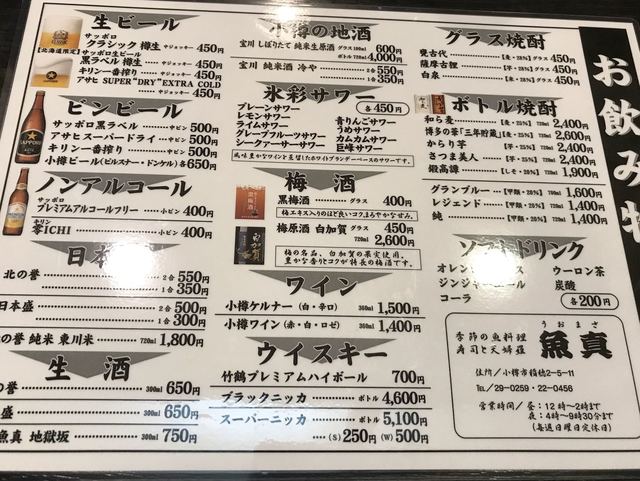 お飲み物
生ビール
【北海道限定】
サッポロ
クラシック 樽生 中ジョッキー 450円
サッポロ生ビール
黒ラベル 樽生 中ジョッキー 450円
キリン一番搾り 中ジョッキー 450円
アサヒ SUPER"DRY"EXTRA COLD
中ジョッキー 450円
ビンビール
サッポロ黒ラベル 中ビン 500円
アサヒスーパードライ 中ビン 500円
キリン一番搾り 中ビン 500円
小樽ビール(ピルスナー・ドンケル) 各650円
ノンアルコール
サッポロ
プレミアムアルコールフリー 小ビン 400円
キリン
零ICHI 小ビン 400円
日本
北の誉 2合 550円
1合 350円
日本盛 2合 500円
1合 300円
の誉 純米 東川米 720ml 1,800円
生酒
の誉 300ml 650円
盛 300ml 650円
魚真 地獄坂 300ml 750円
小樽の地酒
宝川 しぼりたて 純米生原酒 グラス100ml 600円
ボトル720ml 4,000円
宝川 純米酒 冷や 2合 550円
1合 350円
氷彩サワー
各450円
プレーンサワー
レモンサワー
ライムサワー
グレープフルーツサワー
シークァーサーサワー
青りんごサワー
うめサワー
カムカムサワー
巨峰サワー
風味豊かなワインと豆類したホワイトブランデーベースのサワーです。
梅酒
黒梅酒 グラス 400円
梅エキス入りのほど良いコクまろやかな甘み。
梅原酒 白加賀 グラス 450円
720ml 2,600円
梅の名品、白加賀の果実使用。
豊かな香りとコクが特長の梅酒です。
ワイン
小樽ケルナー (白・辛口) 360ml 1,500円
小樽ワイン (赤・白・ロゼ) 360ml 1,400円
ウイスキー
竹鶴プレミアムハイボール 700円
ブラックニッカ ボトル 4,600円
スーパーニッカ ボトル 5,100円
(S)250円 (W)500円
グラス焼酎
甕古代 [麦・28%] グラス 450円
薩摩古狸 [芋・28%] グラス 450円
白泉 [米・28%] グラス 450円
ボトル焼酎
和ら麦 [麦・25%] 720ml 2,400円
博多の華「三年貯蔵」 [麦・25%] 720ml 2,600円
からり芋 [芋・25%] 720ml 2,400円
さつま美人 [芋・25%] 720ml 2,400円
鍛高譚 [しそ・20%] 720ml 1,900円
グランブルー [甲類・25%] 700ml 1,600円
レジェンド [甲類・20%] 720ml 1,400円
純 [甲類・25%] 720ml 1,400円
ソフトドリンク
オレンジ ース
ジンジャー ール
コーラ
ウーロン茶
炭酸
各200円
季節の魚料理
寿司と天婦羅
うおまさ
魚真
住所/小樽市稲穂2-5-11
TEL/29-0259・22-0456
営業時間/昼:12時〜2時まで
夜:4時〜9時30分まで
(毎週日曜日定休日)